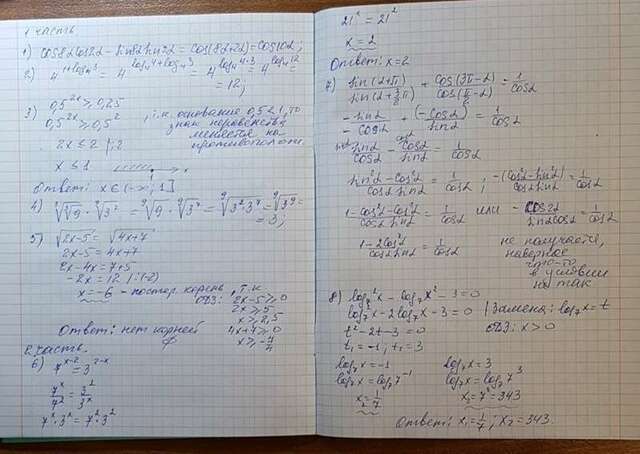 1 часть
1) cos8α cos2α − sin8α sin2α = cos(8α+2α) = cos10α;
2) 4^(1+log₄3) = 4^(log₄4+log₄3) = 4^(log₄4·3) = 4^(log₄12) =
= 12;
3) 0,5^(2x) ≥ 0,25
0,5^(2x) ≥ 0,5² , т.к. основание 0,5 < 1, то
знак неравенства
2x ≤ 2 |:2 меняется на
противополож.
x ≤ 1
Ответ: x ∈ (−∞; 1]
4) ∛9 · ⁹√3² = ⁹√9 · ⁹√3⁷ = ⁹√3²3⁷ = ⁹√3⁹ =
= 3;
5) √2x−5 = √4x+7
2x−5 = 4x+7
2x−4x = 7+5
−2x = 12 |:(−2)
x = −6 − постор. корень, т.к.
ОДЗ: 2x−5 ≥ 0
2x ≥ 5
x ≥ 2,5
4x+7 ≥ 0
x ≥ −7/4
Ответ: нет корней
∅
2 часть.
6) 7^(x−2) = 3^(2−x)
7^x/7² = 3²/3^x
7^x · 3^x = 7² · 3²
21^x = 21²
x = 2
Ответ: x = 2
7) sin(α+π)/sin(α+3/2π) + cos(3π−α)/cos(π/2−α) = 1/cosα
−sinα/−cosα + (−cosα)/sinα = 1/cosα
sinα/cosα − cosα/sinα = 1/cosα
sin²α−cos²α/cosα sinα = 1/cosα ; −(cos²α−sin²α)/cosα sinα = 1/cosα
1−cos²α−cos²α/cosα sinα = 1/cosα или −cos2α/sinα cosα = 1/cosα
1−2cos²α/cosα sinα = 1/cosα
не получается,
наверное
что-то
в условии
не так
8) log₇²x − log₇x² − 3 = 0
log₇²x − 2log₇x − 3 = 0 | Замена: log₇x = t
t² − 2t − 3 = 0 ОДЗ: x > 0
t₁ = −1; t₂ = 3
log₇x = −1 log₇x = 3
log₇x = log₇7⁻¹ log₇x = log₇7³
x₁ = 1/7 x₂ = 7³ = 343
Ответ: x₁ = 1/7; x₂ = 343.